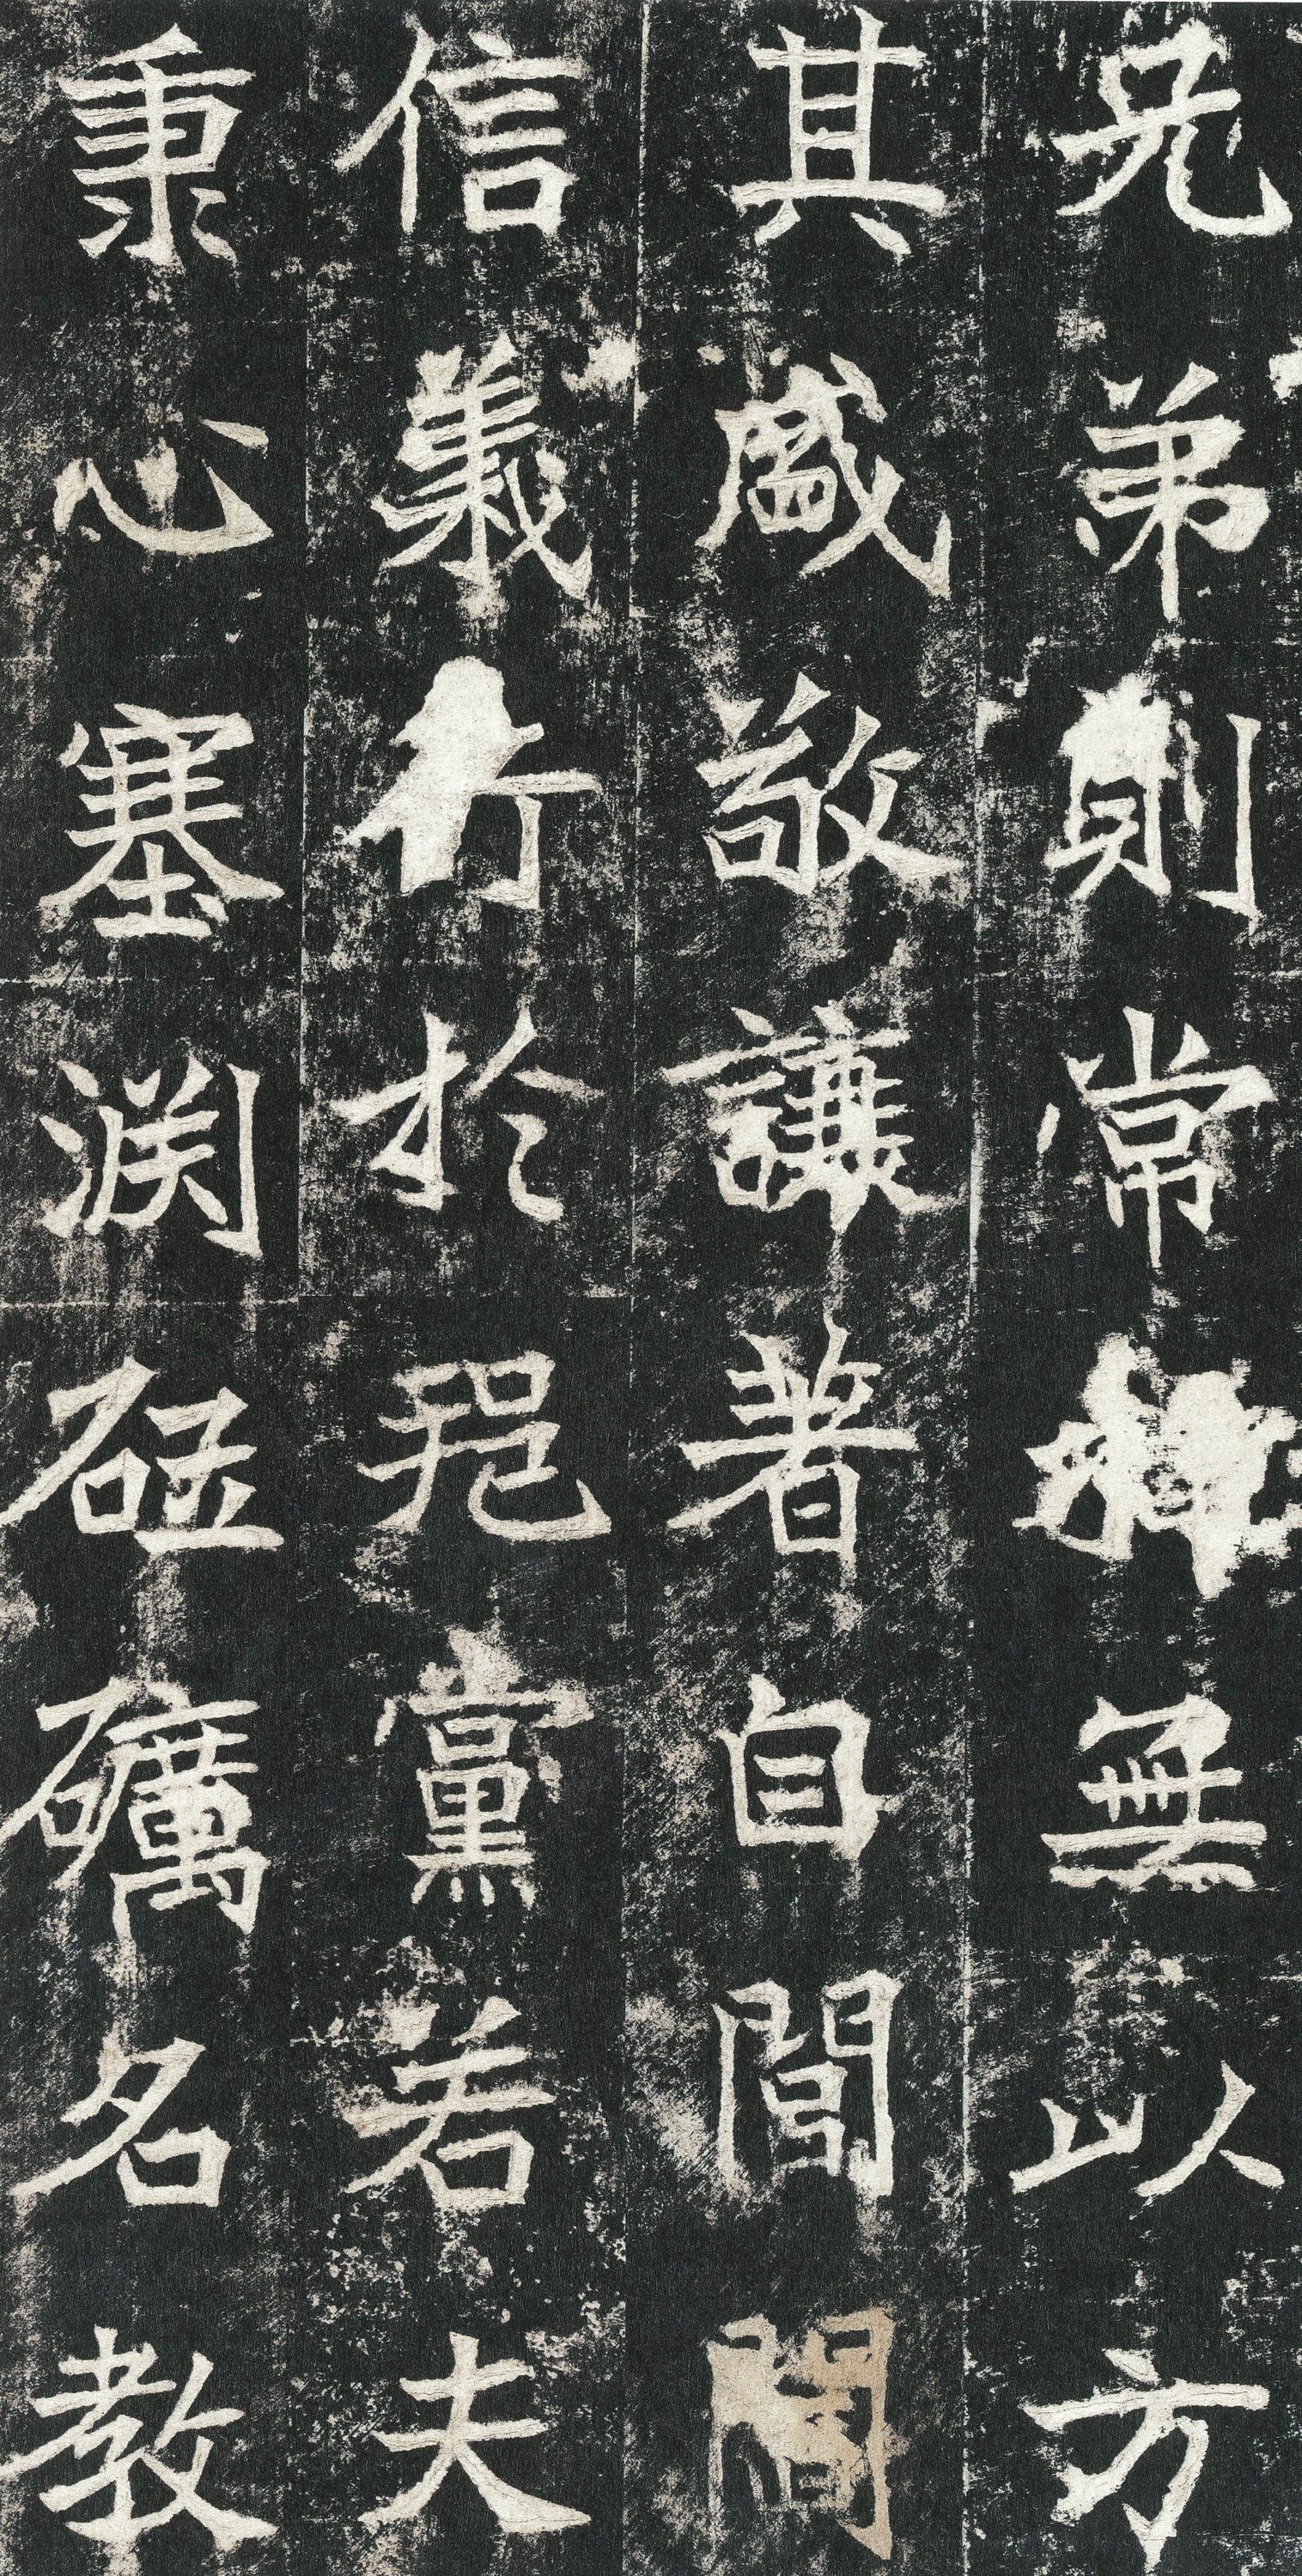 兄弟則常無以方
其盛敬讓著自閭
信義行於邦黨若夫
秉心塞淵砥礪名教